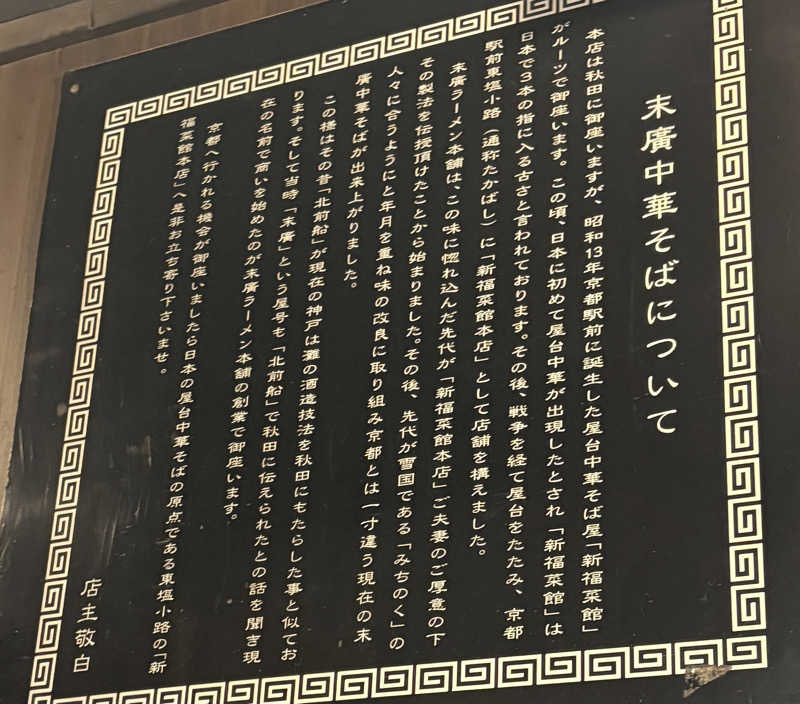 末廣中華そばについて
本店は秋田に御座いますが、昭和13年京都駅前に誕生した屋台中華そば屋「新福菜館」
がルーツで御座います。この頃、日本に初めて屋台中華が出現したとされ「新福菜館」は
日本で3本の指に入る古さと言われております。その後、戦争を経て屋台をたたみ、京都
駅前東塩小路（通称たかばし）に「新福菜館本店」として店舗を構えました。
末廣ラーメン本舗は、この味に惚れ込んだ先代が「新福菜館本店」ご夫妻のご厚意の下
その製法を伝授頂けたことから始まりました。その後、先代が雪国である「みちのく」の
人々に合うようにと年月を重ね味の改良に取り組み京都とは一寸違う現在の末
廣中華そばが出来上がりました。
この様はその昔「北前船」が現在の神戸は灘の酒造技法を秋田にもたらした事と似てお
ります。そして当時「末廣」という屋号も「北前船」で秋田に伝えられたとの話を聞き現
在の名前で商いを始めたのが末廣ラーメン本舗の創業で御座います。
京都へ行かれる機会が御座いましたら日本の屋台中華そばの原点である東塩小路の「新
福菜館本店」へ是非お立ち寄り下さいませ。
店主敬白